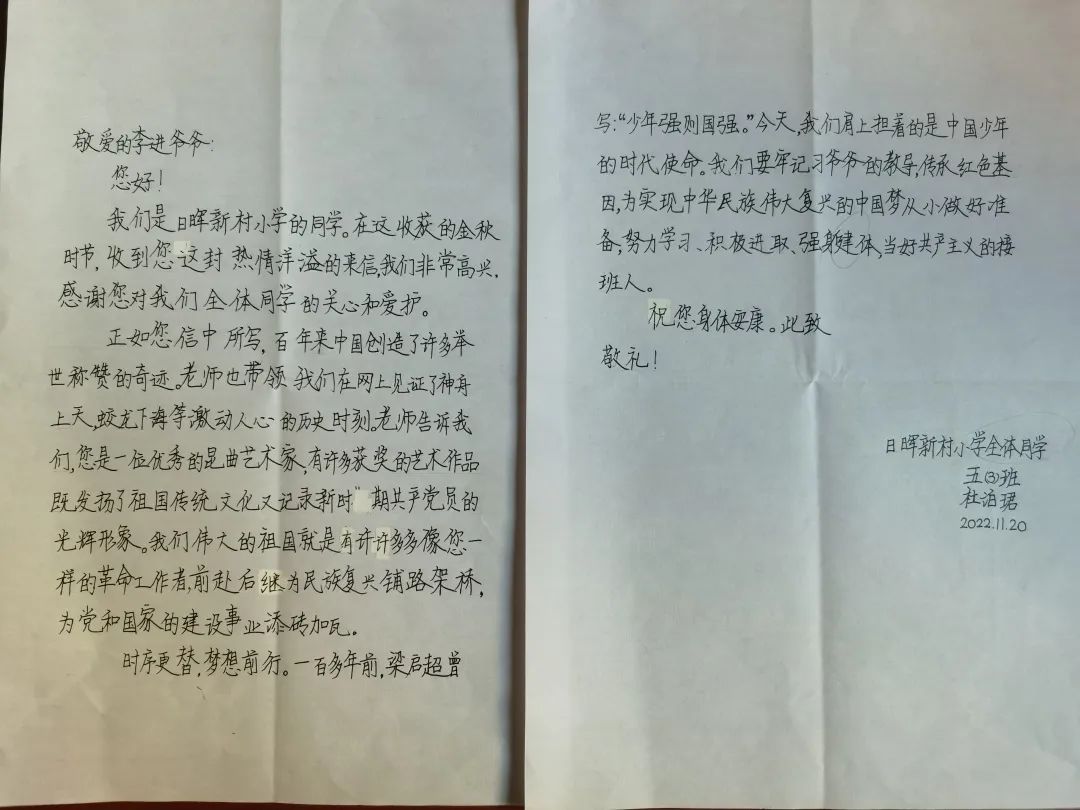 敬爱的李进爷爷:
您好!
我们是日晖新村小学的同学。在这收获的金秋
时节,收到您这封热情洋溢的来信,我们非常高兴.
感谢您对我们全体同学的关心和爱护。
正如您信中所写,百年来中国创造了许多举
世称赞的奇迹。老师也带领我们在网上见证了神舟
上天,蛟龙下海等激动人心的历史时刻。老师告诉我
们,您是一位优秀的昆曲艺术家,有许多获奖的艺术作品
既发扬了祖国传统文化又记录新时期共产党员的
光辉形象。我们伟大的祖国就是有许许多多像您一
样的革命工作者,前赴后继为民族复兴铺路架桥,
为党和国家的建设事业添砖加瓦。
时序更替,梦想前行。一百多年前,梁启超曾
写:“少年强则国强。”今天,我们肩上担着的是中国少年
的时代使命。我们要牢记习爷爷的教导,传承红色基
因,为实现中华民族伟大复兴的中国梦从小做好准
备,努力学习、积极进取、强身建体,当好共产主义的接
班人。
祝您身体安康。此致
敬礼!
日晖新村小学全体同学
五(3)班
杜泊珺
2022.11.20